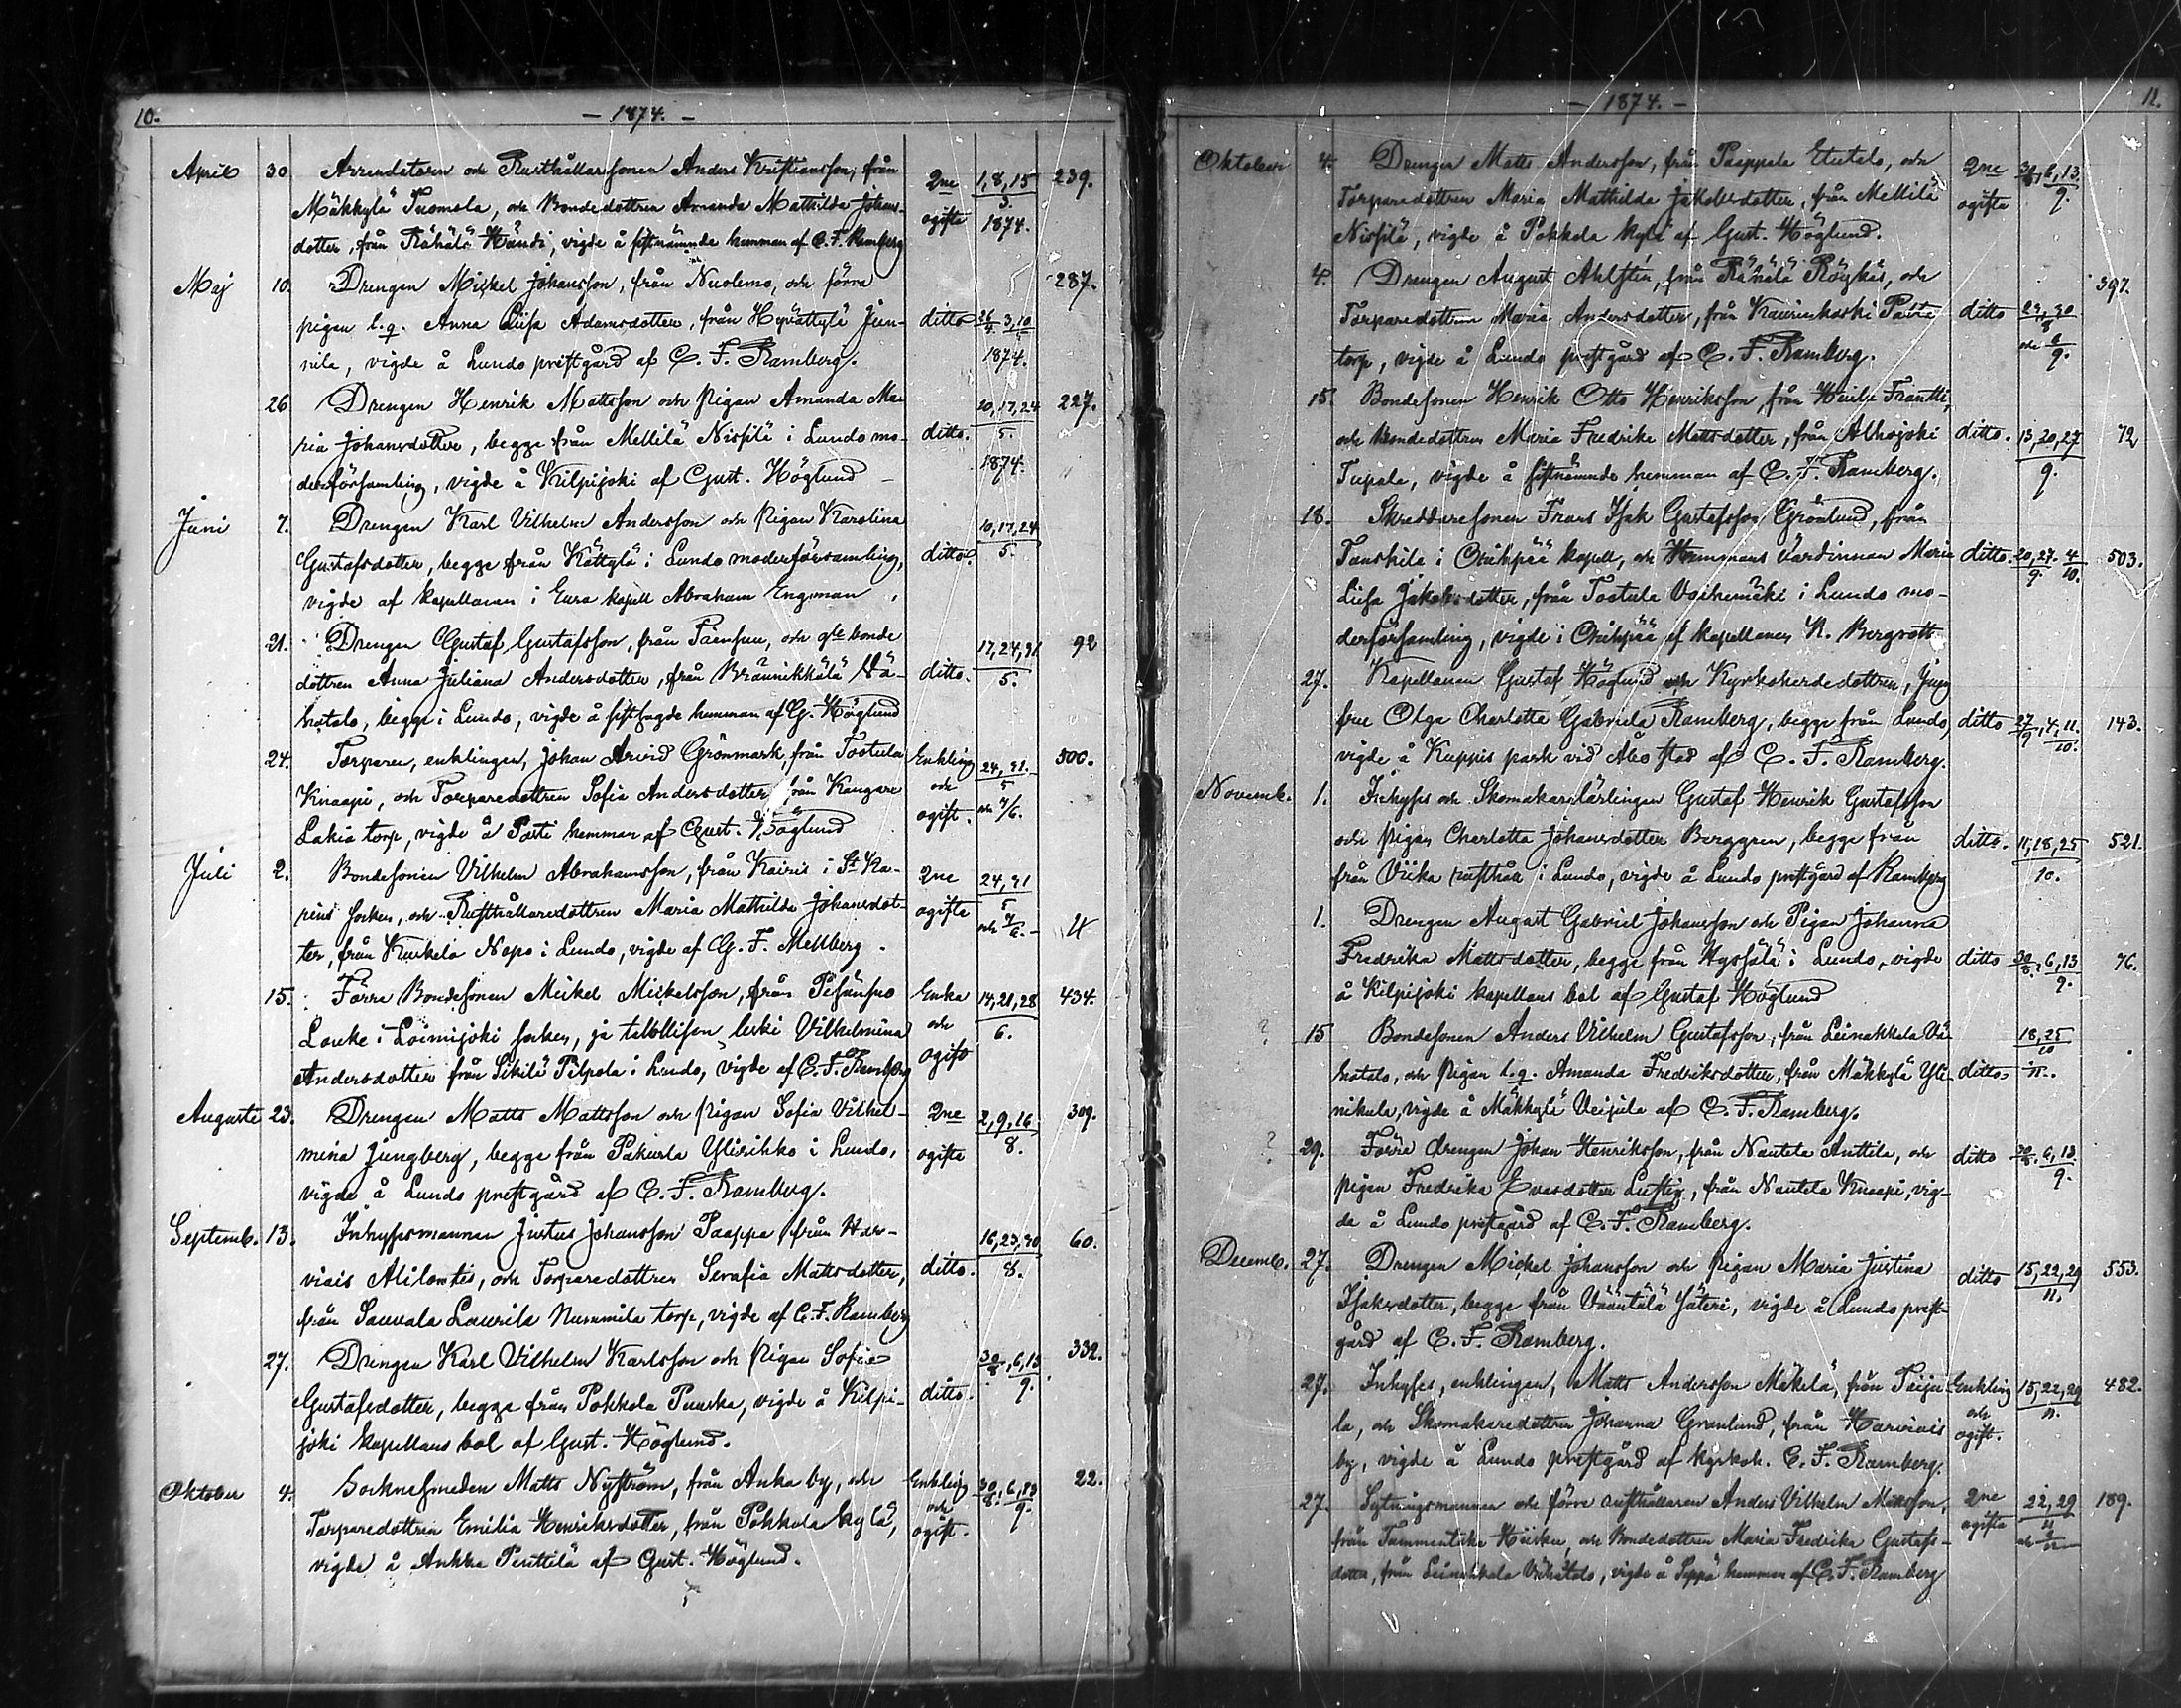 10. - 1874. -
April 30 Arrendatoren och Rusthållarsonen Anders Kristiansson, från
Mäkkylä Tuomola, och Bondedottren Amanda Mathilda Johans- 2ne 1,8,15 239.
dotter, från Rähälä Handi, vigde å sistnämnde hemman af C. F. Ramberg ogifta 3. 1874.
Maj 10. Drengen Mickel Johansson, från Nuolemo, och förra 287.
pigan l. q. Anna Lisa Adamsdotter, från Hypöttylä Jun- ditto 26/4 3,10/5
nila, vigde å Lundo prestgård af C. F. Ramberg. 1874.
26 Drengen Henrik Mattsson och Pigan Amanda Ma- 10,17,24 227.
ria Johansdotter, begge från Mellilä Nissilä i Lundo mo- ditto. 5.
derförsamling, vigde å Kilpijoki af Gust. Höglund 1874.
Juni 7. Drengen Karl Vilhelm Andersson och Pigan Karolina 10,17,24
Gustafsdotter, begge från Kättylä i Lundo moderförsamling, ditto. 5.
vigde af kapellanen i Eura kapell Abraham Engman
21. Drengen Gustaf Gustafsson, från Paensuu, och gle bonde 17,24,31 92
dottren Anna Juliana Andersdotter, från Bräunikkälä Vä- ditto. 5.
hatalo, begge i Lundo, vigde å sistsagde hemman af G. Höglund
24. Torparen, enklingen, Johan Arvid Grönmark, från Tostula Enkling 24,31. 500.
Knaapi, och Torparedottren Sofia Andersdotter från Kangare och 5
Lakia torp, vigde å Pasti hemman af Gust. Höglund ogift. och 7/6.
Juli 2. Bondesonen Vilhelm Abrahamsson, från Kairis i St Ka- 2ne 24,31
rins socken, och Rusthållaredottren Maria Mathilda Johansdot- ogifta 5 och 7/6. 4
ter, från Kurkela Napo i Lundo, vigde af G. F. Mellberg.
15. Förre Bondesonen Mickel Mickelsson, från Pesänsuo Enka 14,21,28 434.
Louke i Loimijoki socken, ja tilollison leski Vilhelmina och 6.
Andersdotter från Sikilä Pilpola i Lundo, vigde af C. F. Ramberg ogift
Augusti 23. Drengen Matts Mattsson och Pigan Sofia Vilhel- 2ne 2,9,16 309.
mina Jungberg, begge från Pakurla Ylirihko i Lundo, ogifta 8.
vigde å Lundo prestgård af C. F. Ramberg.
Septemb. 13. Inhyssmannen Justus Johansson Paappa från Har- 16,23,30 60.
viais Alilantis, och Torparedottren Serafia Mattsdotter, ditto. 8.
från Sauvala Laurila Nummila torp, vigde af C. F. Ramberg
27. Drengen Karl Vilhelm Karlsson och Pigan Sofia 30/8, 6,13 332.
Gustafsdotter, begge från Pokkola Puuska, vigde å Kilpi- ditto. 9.
joki kapellans bol af Gust. Höglund.
Oktober 4. Socknesmeden Matts Nyström, från Anka by, och Enkling 30/8, 6,13 22.
Torparedottren Emilia Henriksdotter, från Pokkola kylä, och ogift. 9.
vigde å Ankka Penttilä af Gust. Höglund.
- 1874. - 11.
Oktober 4. Drengen Matts Andersson, från Paappala Etutalo, och 2ne 30/8, 6,13
Torparedottren Maria Mathilda Jakobsdotter, från Mellilä ogifta 9.
Nissilä, vigde å Pokkola kylä af Gust. Höglund.
4. Drengen August Ahlstén, från Rähälä Röyskäs, och 397.
Torparedottren Maria Andersdotter, från Kaurinkoski Patia ditto 23,30/8
torp, vigde å Lundo prestgård af C. F. Ramberg. och 6/9.
15. Bondesonen Henrik Otto Henriksson, från Huilu Frantti,
och Bondedottren Maria Fredrika Mattsdotter, från Alhojoki ditto. 13,20,27 72
Tupala, vigde å sistnämnde hemman af C. F. Ramberg. 9.
18. Skreddaresonen Frans Isak Gustafsson Grönlund, från
Tauskila i Orihpää kapell, och Hemmans värdinnan Maria ditto. 20,27/9. 4/10. 503.
Lisa Jakobsdotter, från Tostula Voshemäki i Lundo mo-
derförsamling, vigde i Orihpää af kapellanen A. Bergroth
27. Kapellanen Gustaf Höglund och Kyrkoherdedottren, Jung
frue Olga Charlotta Gabriela Ramberg, begge från Lundo, ditto 27/9, 4,11./10. 143.
vigde å Kuppis park vid Åbo stad af C. F. Ramberg.
Novemb. 1. Inhyses och Skomakarelärlingen Gustaf Henrik Gustafsson
och Pigan Charlotta Johansdotter Berggren, begge från ditto. 11,18,25 521.
från Viika rusthåll i Lundo, vigde å Lundo prestgård af Ramberg 10.
1. Drengen August Gabriel Johansson och Pigan Johanna
Fredrika Mattsdotter, begge från Hyssälä i Lundo, vigde ditto 30/8, 6,13 76.
å Kilpijoki kapellans bol af Gustaf Höglund 9.
? 15 Bondesonen Anders Vilhelm Gustafsson, från Leinakkala Vä- 18,25/10
hatalo, och Pigan l. q. Amanda Fredriksdotter, från Mäkkylä Yli- ditto. 1/11.
nikula, vigde å Mäkkylä Veijula af C. F. Ramberg.
? 29. Förre drengen Johan Henriksson, från Nautela Anttila, och ditto 30/8. 6,13
pigan Fredrika Evasdotter Lustig, från Nautela Knaapi, vig- 9.
de å Lundo prestgård af C. F. Ramberg.
Decemb. 27. Drengen Mickel Johansson och Pigan Maria Justina ditto 15,22,29 553.
Isaksdotter, begge från Vääntälä Säteri, vigde å Lundo prest- 11.
gård af C. F. Ramberg.
27. Inhyses, enklingen, Matts Andersson Mäkelä, från Paiju- Enkling 15,22,29 482.
la, och Skomakaredottren Johanna Grönlund, från Harviais och 11.
by, vigde å Lundo prestgård af kyrkoh. C. F. Ramberg. ogift.
27. Sytningsmannen och förre rusthållaren Anders Vilhelm Matsson, 2ne 22,29 189.
från Tammentaka Hiiska, och Bondedottren Maria Fredrika Gustafs- ogifta 11
dotter, från Leinakkala Vähätalo, vigde å Seppä hemman af C. F. Ramberg